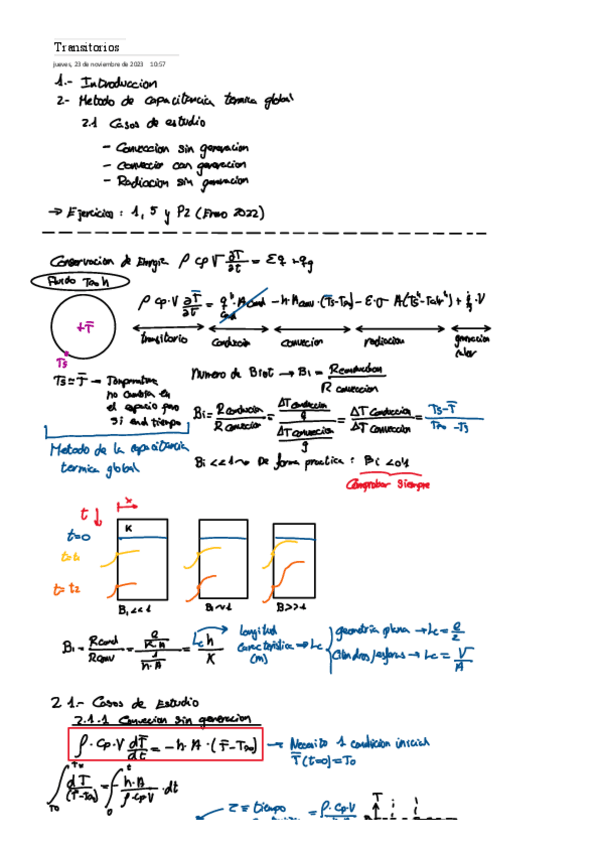 Transitorios
jueves, 23 de noviembre de 2023 10:57
1.- Introduccion
2- Metodo de capacitancia termica global
2.1 Casos de estudio
- Conveccion sin generacion
- Conveccion con generacion
- Radiacion sin generacion
→ Ejercicios : 1, 5 y P2 (Enero 2022)
Conservacion de Energia ρ cp V ∂T/∂t = Σq + qg
Fluido T∞ h
ρ cp·V ∂T̄/∂t = q"·Acond - h·Aconv·(Ts-T∞) - ε·σ· A(Ts⁴-Talr⁴) + q̇g·V
cond
transitorio conduccion conveccion radiacion generacion calor
+T̄
Ts
Ts ≈ T̄ → Temperatura no cambia en el espacio pero si en el tiempo
Numero de Biot → Bi = Rconduccion / R conveccion
Bi = R conduccion / R conveccion = (ΔT conduccion / q) / (ΔT conveccion / q) = ΔT conduccion / ΔT conveccion = Ts-T̄ / T∞ -Ts
Metodo de la capacitancia termica global
Bi <<1 → De forma practica : Bi <0'1
Comprobar siempre
x
t ↓
K
t=0
t=t1
t= t2
Bi <<1 Bi ~1 Bi>>1
Bi = Rcond / Rconv = (e / K·A) / (1 / h·A) = Lc h / K
longitud caracteristica → Lc (m)
geometria plana → Lc = e/2
Cilindros/esferas → Lc = V/A
2 1.- Casos de Estudio
2.1.1 Conveccion sin generacion
ρ· Cp·V dT̄/dt = -h· A ·(T̄-T∞) → Necesito 1 condicion inicial
T̄(t=0)=T0
∫ dT̄/(T̄-T∞) = ∫ - h·A / ρ·Cp·V · dt
τ = tiempo = ρ·Cp·V
T